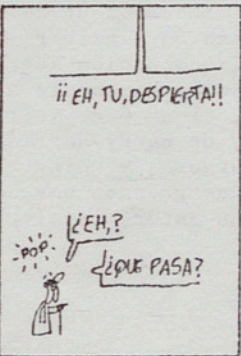 ¡¡EH, TU, DESPIERTA!!
¿EH,?
POP
¿QUE PASA?